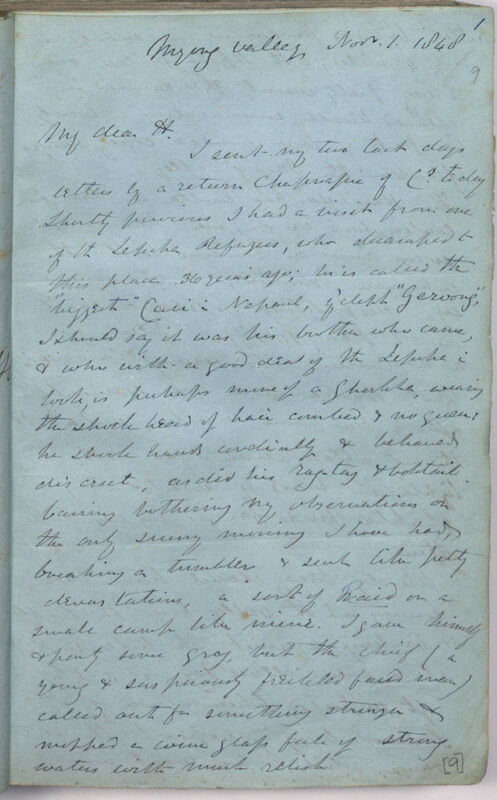 1
Myong valley, Nov. 1. 1848
9
My dear H.
I sent my two last days
letters by a return Chaprapie of C's to day
Shortly previous I had a visit from one
of the Lepcha Refugees, who decamped to
this place 30 years ago; he is called the
"biggest" Casi in Nepaul, y'clept "Gerwong",
I should say it was his brother who came,
& who with a good deal of the Lepcha in
look, is perhaps more of a Ghorkha, wearing
the shock head of hair combed & no queue:
he shook hands cordially & behaved
discreet, as did his rag-tag & bobtail.
barring bothering my observations on
the only sunny morning I have had,
breaking a tumbler & such like petty
devastations, a sort of Raid on a
small camp like mine. I gave himself
& party some grog, but the chief (a
young & suspiciously freckled faced man)
called out for something stronger &
mopped a wine glass full of strong
waters with much relish
[9]